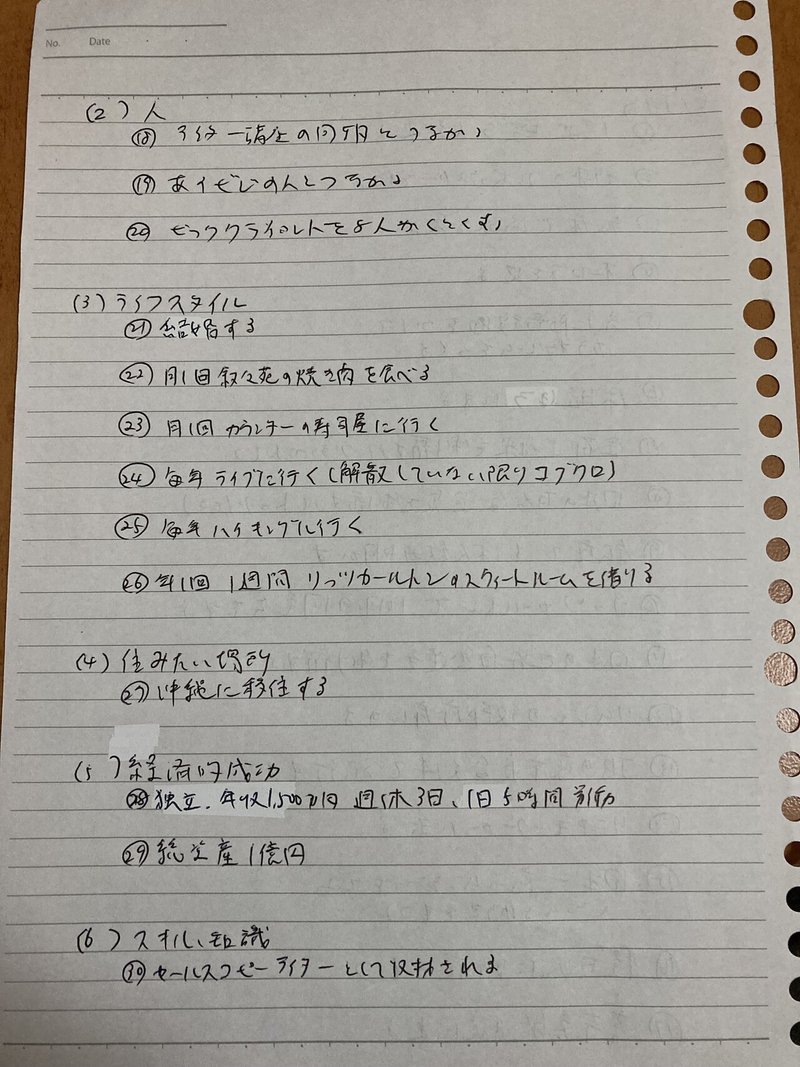 No.
Date
(2) 人
⑱ ライター講座の同期とつながる
⑲ あこがれの人とつながる
⑳ ビッククライアントを8人かくとくする
(3) ライフスタイル
㉑ 結婚する
㉒ 月1回 叙々苑の焼き肉を食べる
㉓ 月1回 カウンターの寿司屋に行く
㉔ 毎年 ライブに行く(解散していない限りコブクロ)
㉕ 毎年 ハイキングに行く
㉖ 年1回 1週間 リッツカールトンのスウィートルームを借りる
(4) 住みたい場所
㉗ 沖縄に移住する
(5) 経済的成功
㉘ 独立、年収1,500万円 週休3日、1日5時間労働
㉙ 総資産1億円
(6) スキル、知識
㉚ セールスコピーライターとして取材される